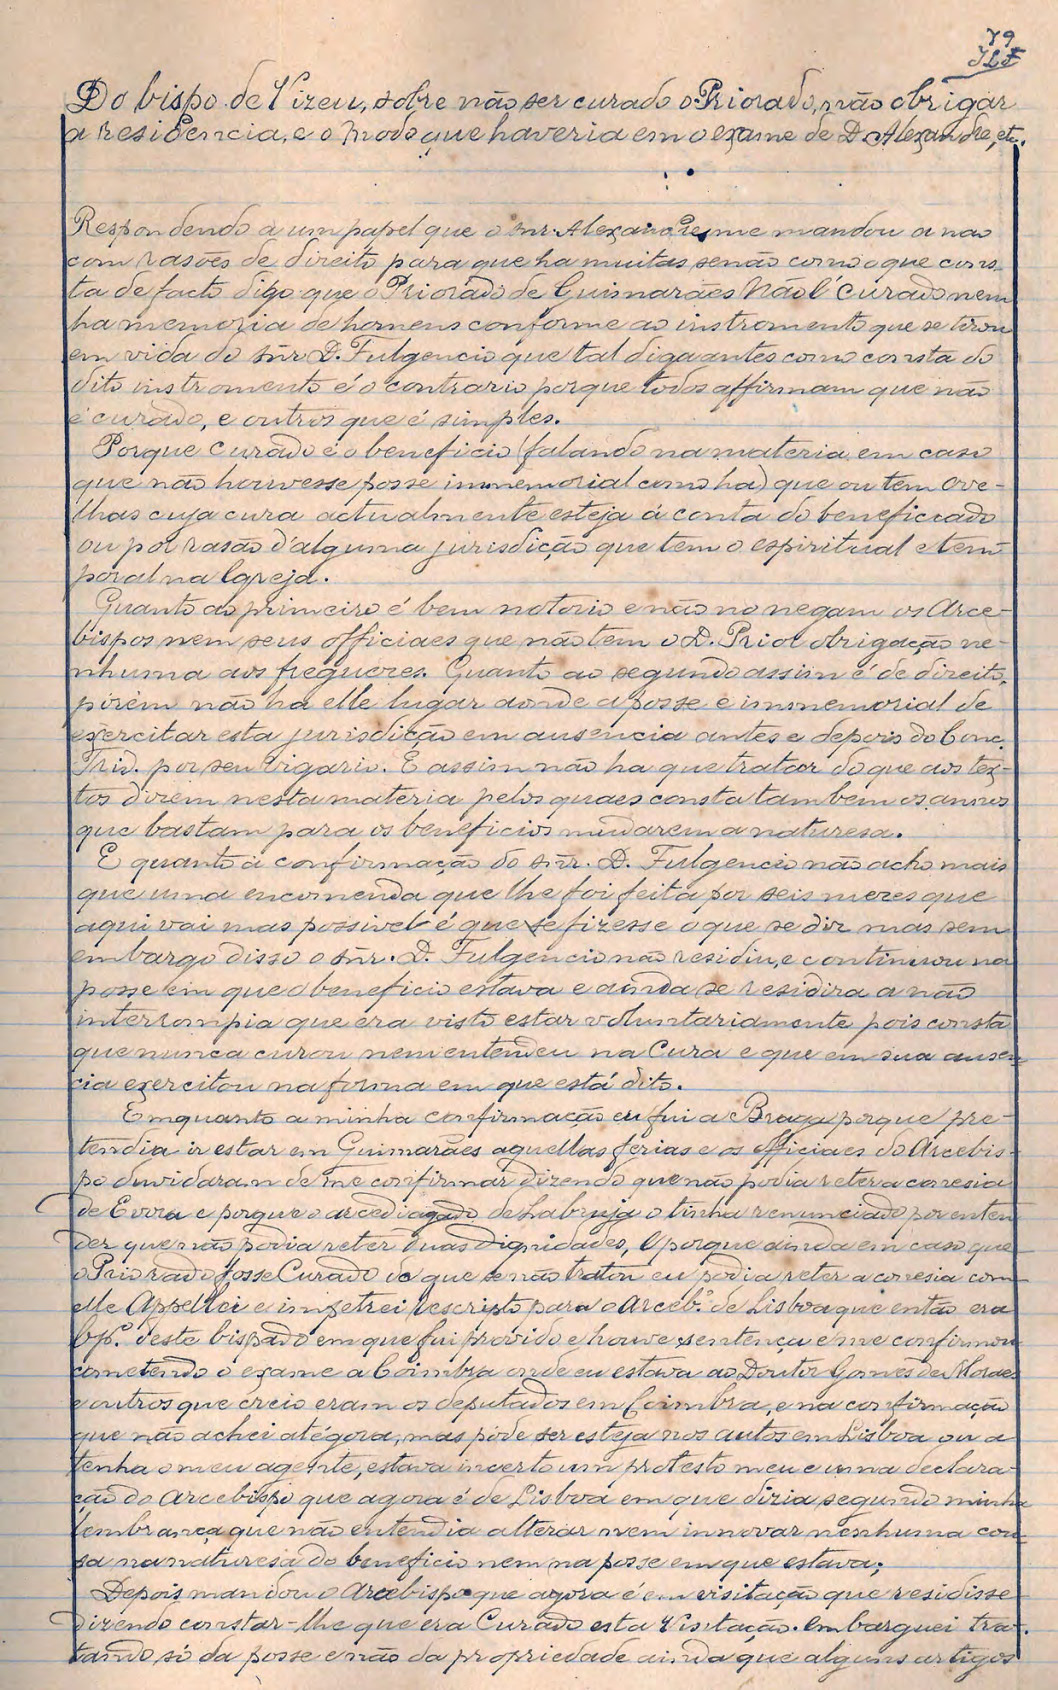 79
Do bispo de Vizeu, sobre não ser curado o Priorado, não obrigar
a residencia, e o modo que haveria em o exame de D. Alexandre, etc.
Respondendo a um papel que o snr. Alexandre me mandou a não
com rasões de direito para que ha muitas, senão como o que cons-
ta de facto digo que o Priorado de Guimarães não é curado nem
ha memoria de homens conforme ao instromento que se tirou
em vida do snr. D. Fulgencio que tal diga antes como consta do
dito instromento é o contrario porque todos affirmam que não
é curado, e outros que é simples.
Porque curado é o beneficio (falando na materia em caso
que não houvesse posse immemorial como ha) que ou tem ove-
lhas cuja cura actualmente esteja á conta do beneficeado
ou por rasão d'alguma jurisdição que tem o espiritual e tem-
poral na Igreja.
Quanto ao primeiro é bem notorio e não no negam os Arce-
bispos nem seus officiaes que não tem o D. Prior obrigação ne-
nhuma aos freguezes. Quanto ao segundo assim é de direito,
pórem não ha elle lugar aonde a posse é immemorial de
exercitar esta jurisdição em ausencia antes e depois do Conc.
Trid. por seu vigario. E assim não ha que tratar do que aos tex-
tos dizem nesta materia pelos quaes consta tambem os annos
que bastam para os beneficios mudarem a naturesa.
E quanto á confirmação do snr. D. Fulgencio não acho mais
que uma encomenda que lhe foi feita por seis mezes que
aqui vai mas possivel é que se fizesse o que se diz mas sem
embargo disso o snr. D. Fulgencio não residiu, e continuou na
posse em que o beneficio estava e ainda se residira a não
interrompia que era visto estar voluntariamente pois consta
que nunca curou nem entendeu na Cura e que em sua ausen-
cia exercitou na forma em que está dito.
Emquanto a minha confirmação eu fui a Braga porque pre-
tendia ir estar em Guimarães aquellas ferias e os officiaes do Arcebis-
po duvidaram de me confirmar dizendo que não podia reter a conesia
de Evora e porque o arcediagado de Labruja o tinha renunciado por enten
der que não podia reter duas dignidades, e porque ainda em caso que
o Priorado fosse Curado do que se não tratou eu podia reter a conesia com
elle Appellei e impetrei rescripto para o Arceb.º de Lisboa que então era
bp.º deste bispado em que fui provido e houve sentença e me confirmou
cometendo o exame a Coimbra onde eu estava ao Doutor Gomes de Moraes
e outros que creio eram os deputados em Coimbra, e na confirmação
que não achei atégora, mas póde ser esteja nos autos em Lisboa ou a
tenha o meu agente, estava incerto um protesto meu e uma declara-
ção do Arcebispo que agora é de Lisboa em que dizia segundo minha
lembrança que não entendia alterar nem innovar nenhuma cou-
sa na naturesa do beneficio nem na posse em que estava;
Depois mandou o Arcebispo que agora é em visitação que residisse
dizendo constar-lhe que era Curado esta Visitação. embarguei tra-
tando só da posse e não da propriedade ainda que alguns artigos